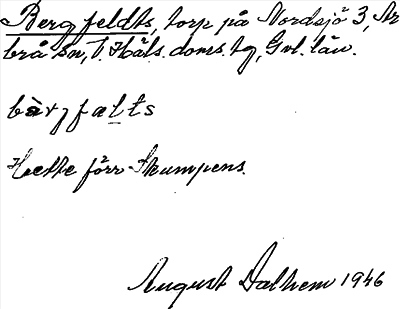 Bergfeldts, torp på Nordsjö 3, Är
brå sn, V. Häls. doms. tg, Gvl. län.
bàrgfælts
Hette förr Skumpens.
August Dalhem 1946